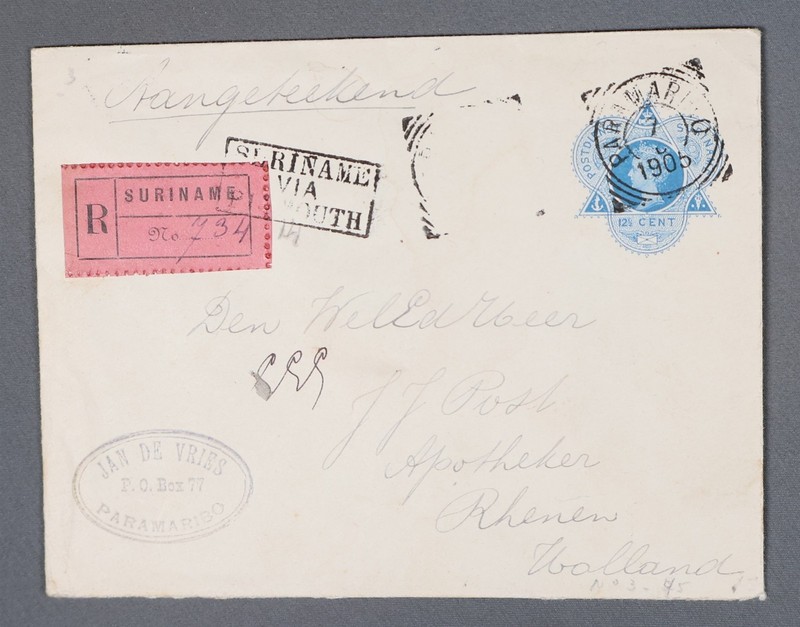 Aangeteekend
SURINAME
VIA
OUTH
R
SURINAME
No. 734
PARAMARIBO
7
1905
12½ CENT
Den WelEd Heer
J J Post
Apotheker
Rhenen
Holland
JAN DE VRIES
P. O. Box 77
PARAMARIBO